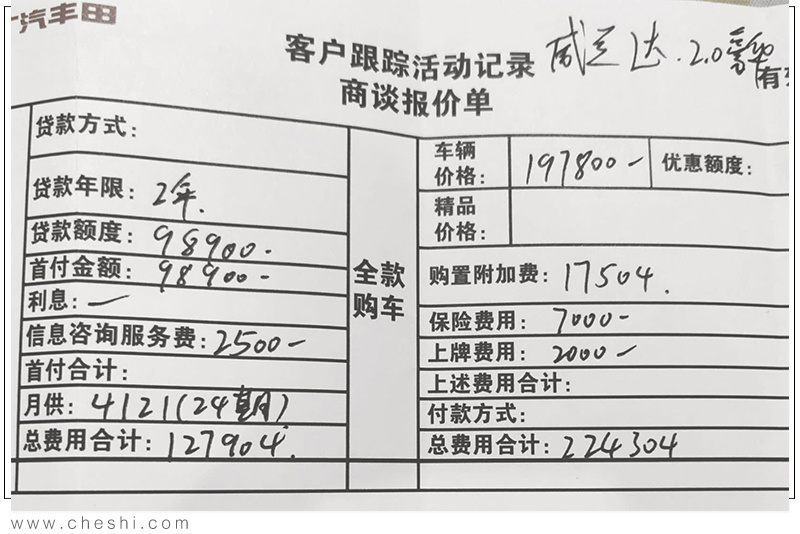 汽丰田
客户跟踪活动记录 威兰达.2.0豪华
商谈报价单 有
贷款方式:
贷款年限: 2年.
贷款额度: 98900.
首付金额: 98900-
利息: —
信息咨询服务费: 2500-
首付合计:
月供: 4121(24期)
总费用合计: 127904.
全款
购车
车辆
价格: 197800- 优惠额度:
精品
价格:
购置附加费: 17504.
保险费用: 7000-
上牌费用: 2000-
上述费用合计:
付款方式:
总费用合计: 224304
www.cheshi.com